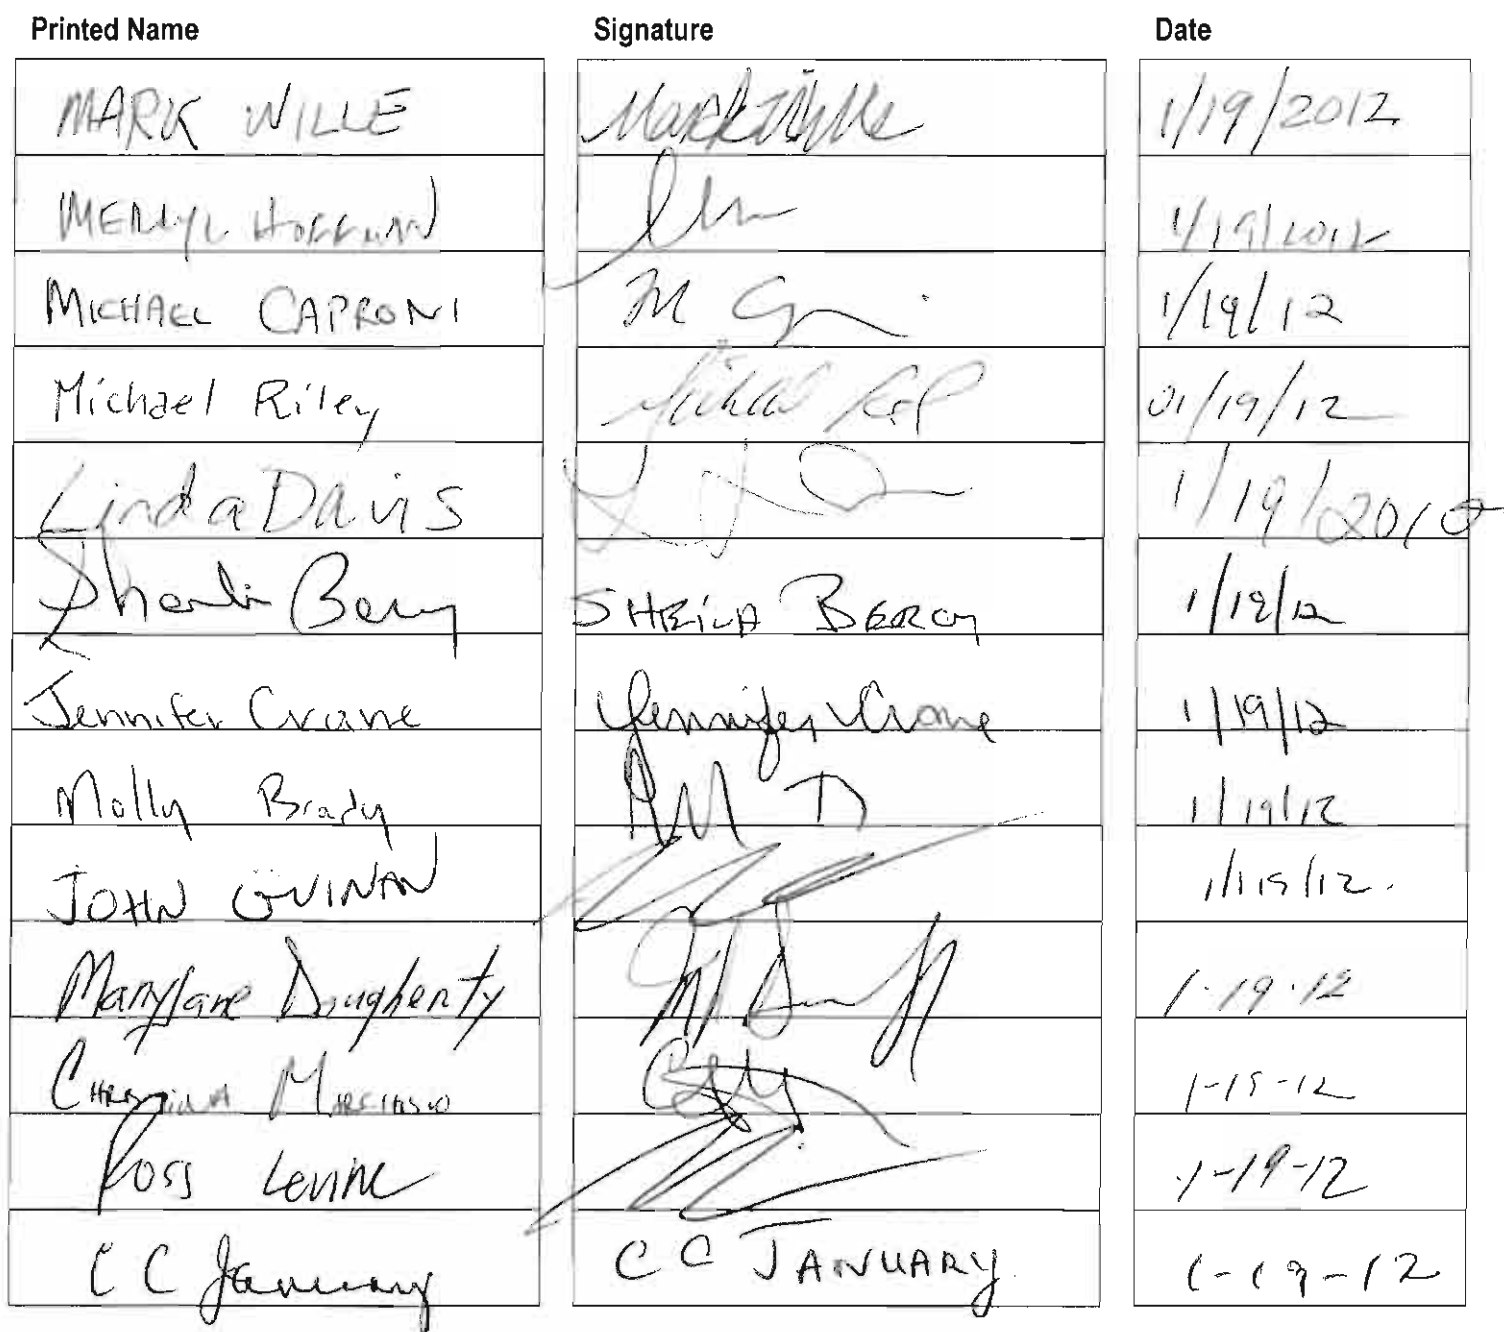 Printed Name Signature Date
MARK WILLE Mark Wille 1/19/2012
MERLYL HOFFMAN 1/19/2012
MICHAEL CAPRONI M C 1/19/12
Michael Riley Michael 01/19/12
Linda Davis L D 1/19/2012
Sheila Berry SHEILA BERRY 1/19/12
Jennifer Crane Jennifer Crane 1/19/12
Molly Brady 1/19/12
JOHN GUINAN 1/19/12.
MaryJane Dougherty 1-19-12
CHRISTINA 1-19-12
Ross Levine 1-19-12
CC January CC JANUARY 1-19-12